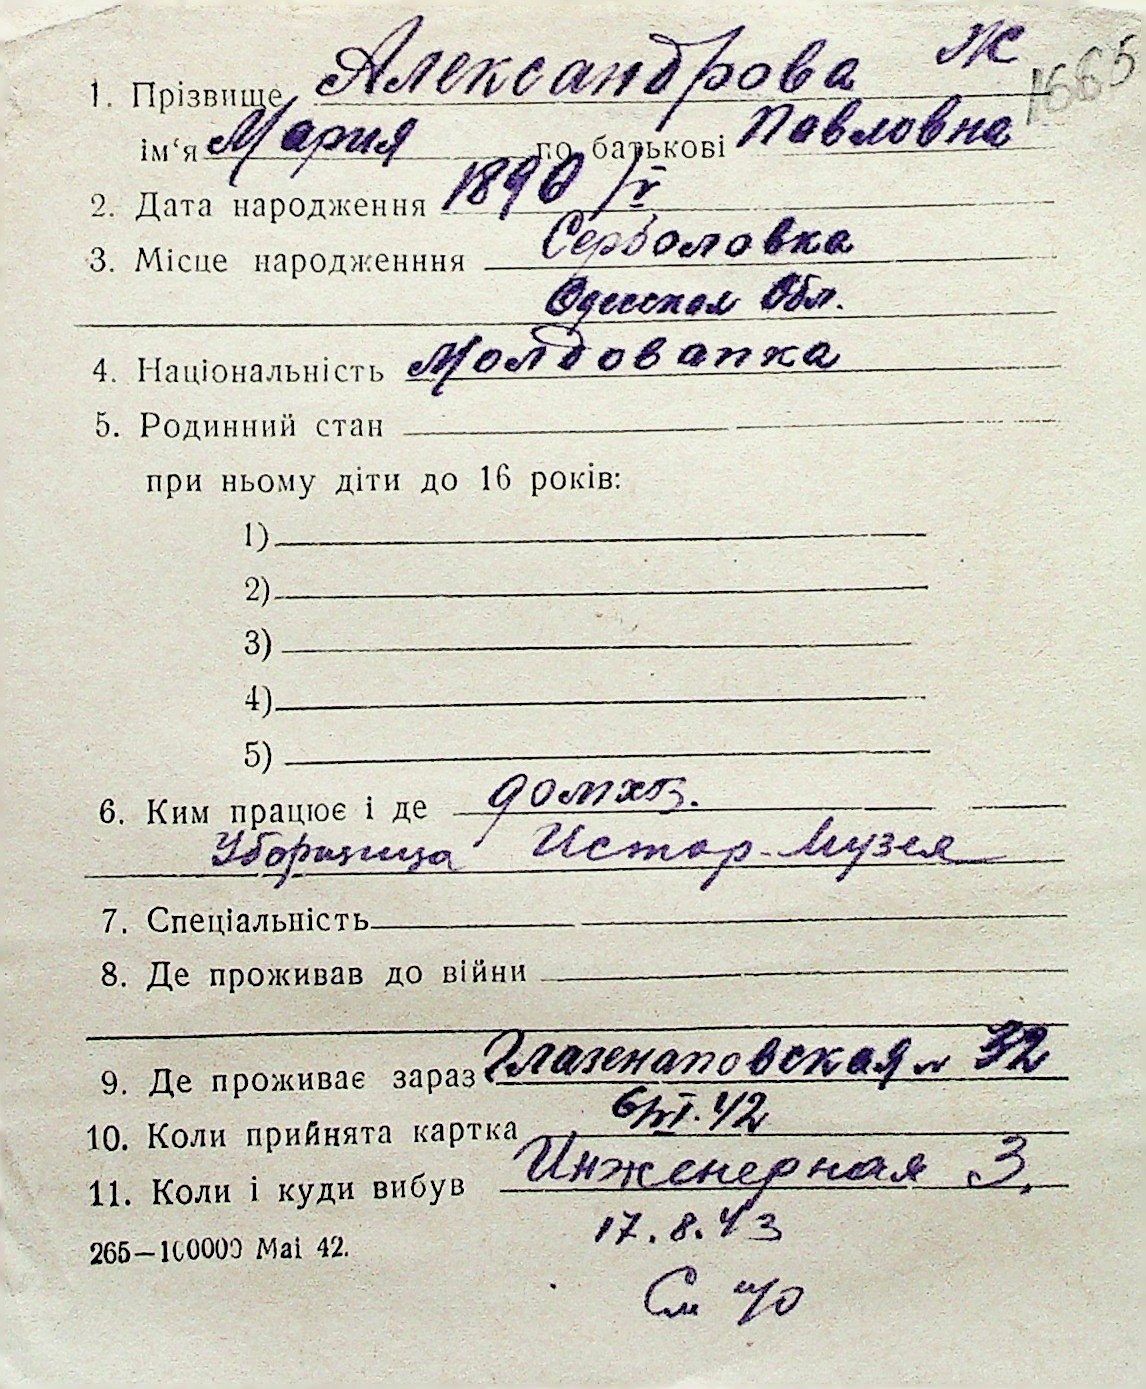 1. Прізвище Александрова Ж 1665
ім‘я Мария по батькові Павловна
2. Дата народження 1890 /V
3. Місце народженння Серболовка
Одесская Обл.
4. Національність Молдованка
5. Родинний стан
при ньому діти до 16 років:
1)
2)
3)
4)
5)
6. Ким працює і де домхоз.
Уборщица Истор. Музея
7. Спеціальність
8. Де проживав до війни
9. Де проживає зараз Глазенаповская № 32
10. Коли прийнята картка 42
11. Коли і куди вибув Инженерная 3.
265—100000 Mai 42. 17.8.43
См